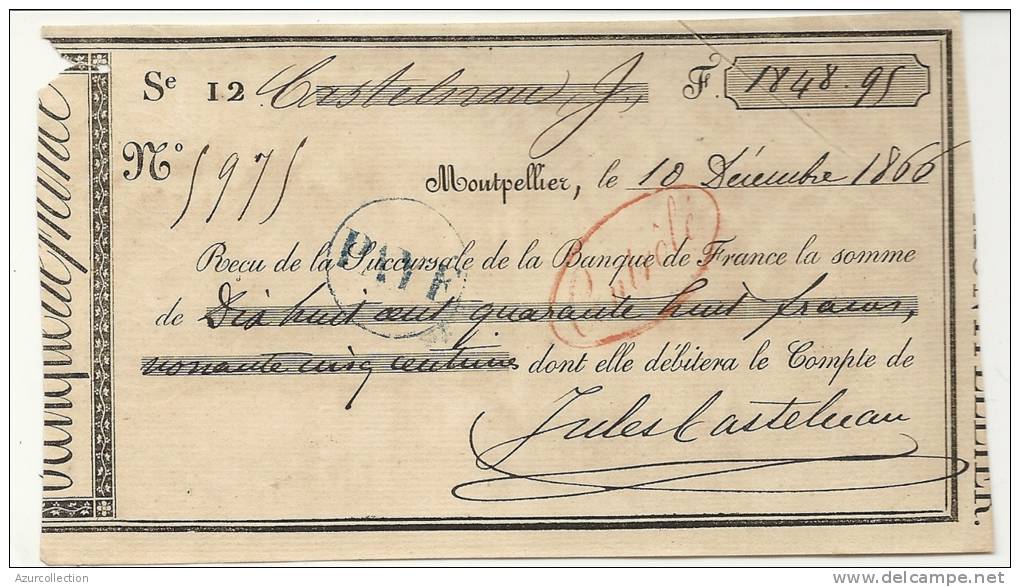 Banque de France
Sᵉ 12 Castelnau, J. F. 1848.95
N° 5975
Montpellier, le 10 Décembre 1866
PAYÉ
Contrôlé
Reçu de la Succursale de la Banque de France la somme
de Dix huit cent quarante huit francs,
nonante cinq centimes dont elle débitera le Compte de
Jules Castelnau
MONTPELLIER
Azurcollection
www.delcampe.net